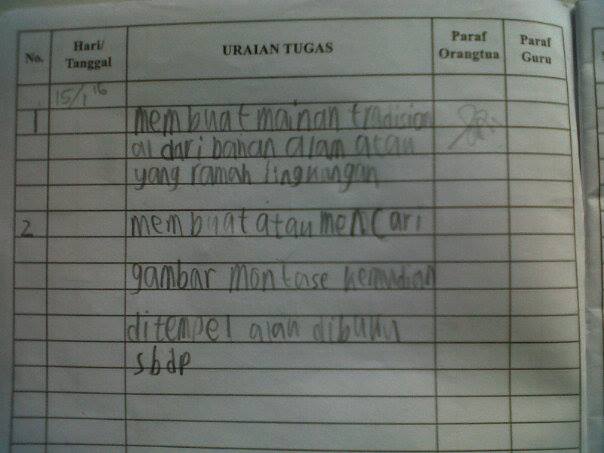 No.
Hari/
Tanggal
URAIAN TUGAS
Paraf
Orangtua
Paraf
Guru
15/1 '16
1
membuat mainan tradision
al dari bahan alam atau
yang ramah lingkungan
2
membuat atau mencari
gambar montase kemudian
ditempel dibuku
sbdp